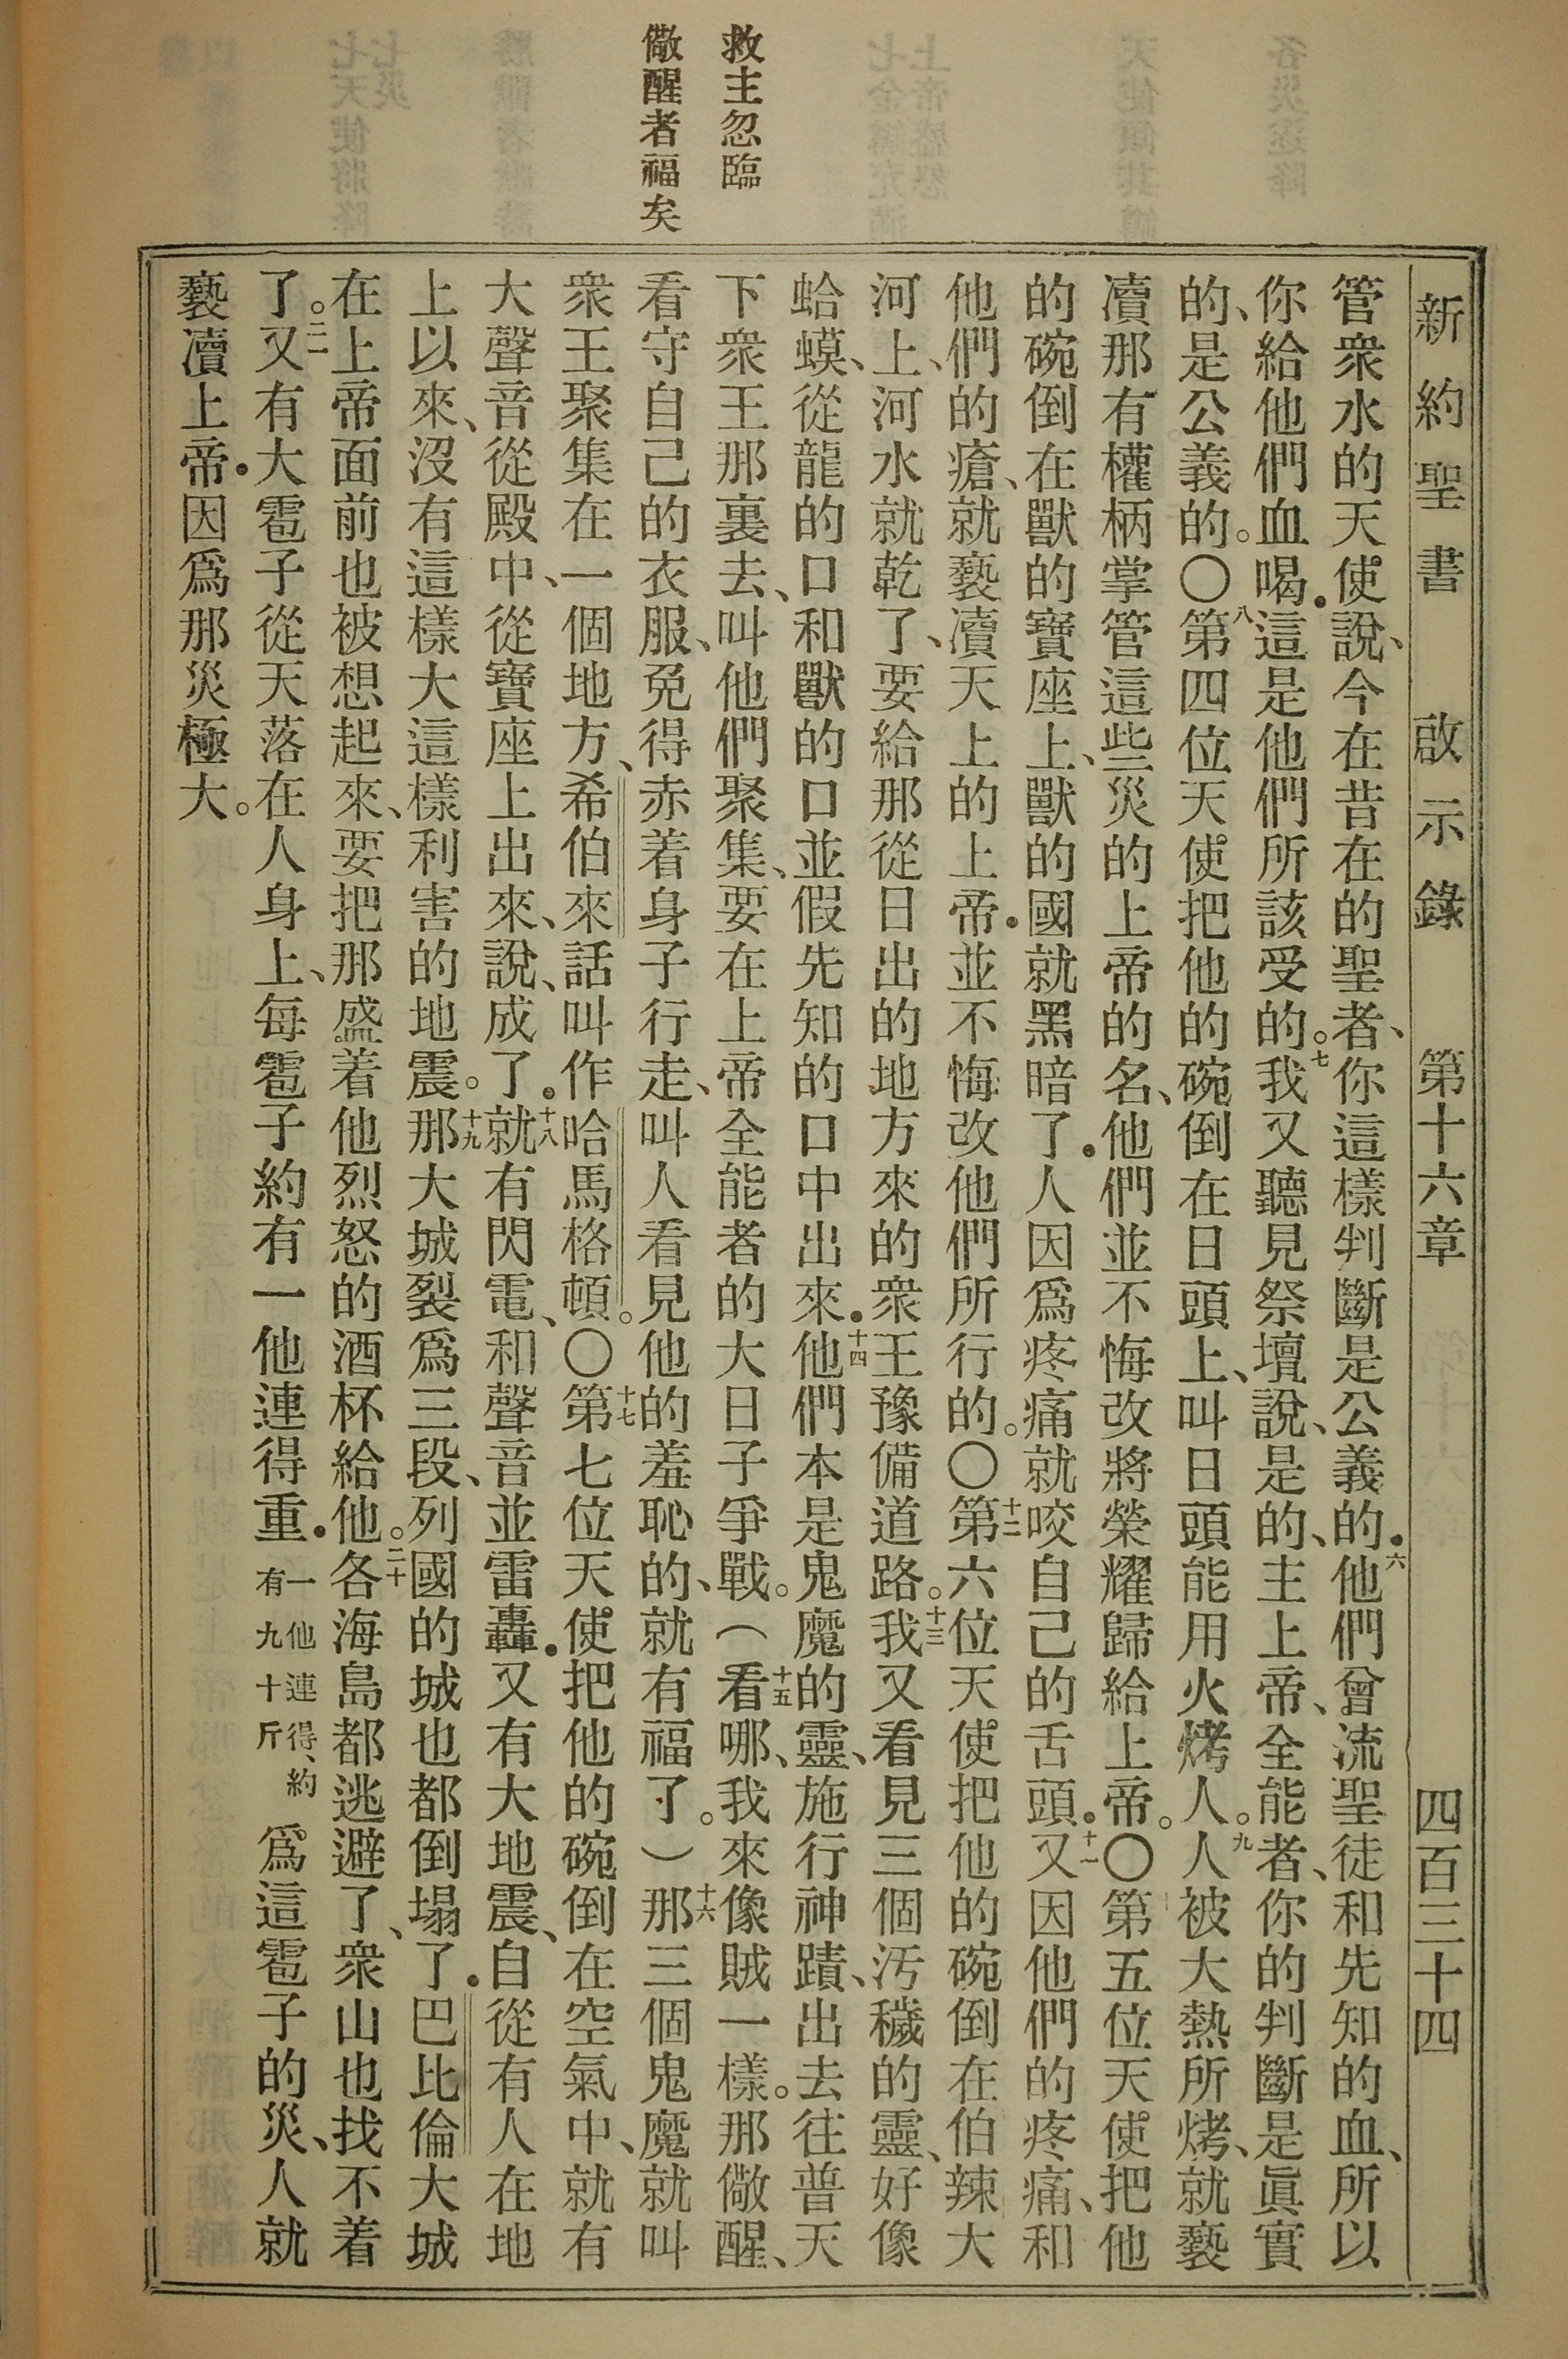 新約聖書 啟示錄 第十六章 四百三十四
救主忽臨
儆醒者福矣
管衆水的天使說、今在昔在的聖者、你這樣判斷是公義的．六他們曾流聖徒和先知的血、所以
你給他們血喝．這是他們所該受的。七我又聽見祭壇說、是的、主上帝、全能者、你的判斷是眞實
的、是公義的。〇八第四位天使把他的碗倒在日頭上、叫日頭能用火烤人。九人被大熱所烤、就褻
瀆那有權柄掌管這些災的上帝的名、他們並不悔改將榮耀歸給上帝。〇第五位天使把他
的碗倒在獸的寶座上、獸的國就黑暗了．人因爲疼痛就咬自己的舌頭．十一又因他們的疼痛、和
他們的瘡、就褻瀆天上的上帝．並不悔改他們所行的。〇十二第六位天使把他的碗倒在伯辣大
河上、河水就乾了、要給那從日出的地方來的衆王豫備道路。十三我又看見三個汚穢的靈、好像
蛤蟆、從龍的口和獸的口並假先知的口中出來．十四他們本是鬼魔的靈、施行神蹟、出去往普天
下衆王那裏去、叫他們聚集、要在上帝全能者的大日子爭戰。（十五看哪、我來像賊一樣。那儆醒、
看守自己的衣服、免得赤着身子行走、叫人看見他的羞恥的、就有福了。）十六那三個鬼魔就叫
衆王聚集在一個地方、希伯來話叫作哈馬格頓。〇十七第七位天使把他的碗倒在空氣中、就有
大聲音從殿中、從寶座上出來、說、成了．十八就有閃電、和聲音並雷轟．又有大地震、自從有人在地
上以來、沒有這樣大這樣利害的地震。十九那大城裂爲三段、列國的城也都倒塌了．巴比倫大城
在上帝面前也被想起來、要把那盛着他烈怒的酒杯給他。二十各海島都逃避了、衆山也找不着
了。二一又有大雹子從天落在人身上、每雹子約有一他連得重．一他連得、約有九十斤爲這雹子的災、人就
褻瀆上帝．因爲那災極大。